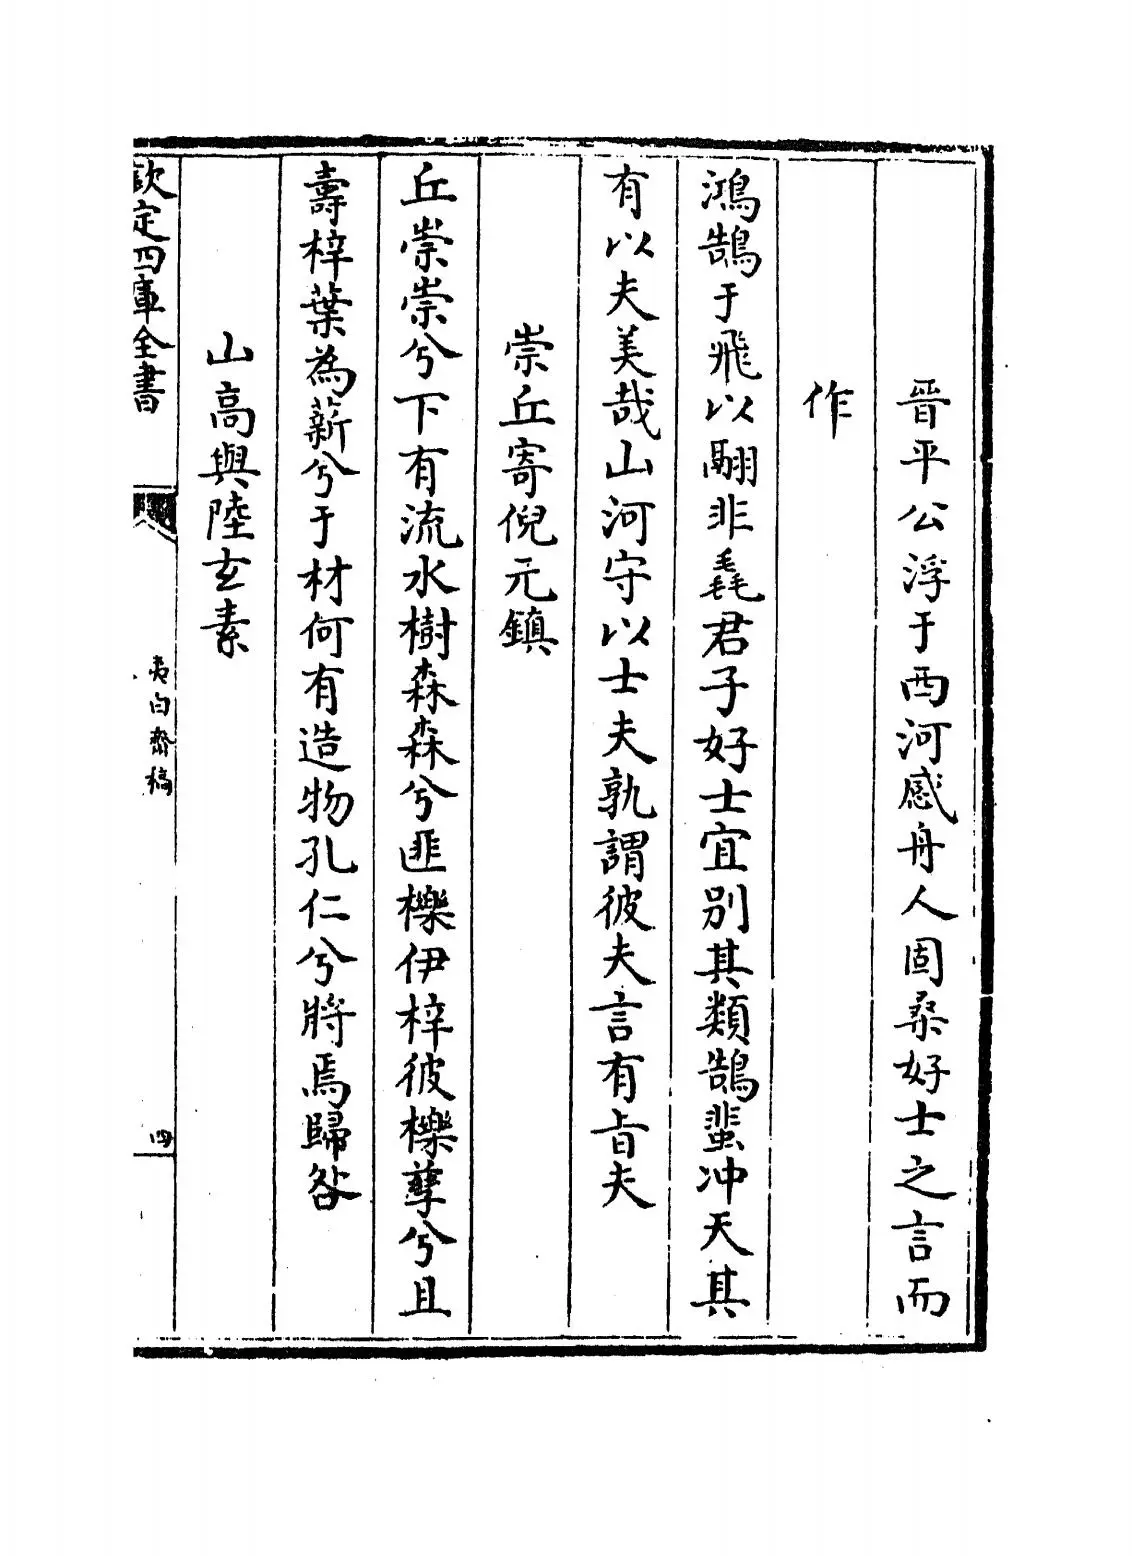 晉平公浮于西河感舟人固桑好士之言而
作
鴻鵠于飛以翮非毳君子好士宜别其類鵠蜚冲天其
有以夫美哉山河守以士夫孰謂彼夫言有旨夫
崇丘寄倪元鎮
丘崇崇兮下有流水樹森森兮匪櫟伊梓彼櫟孽兮且
壽梓葉為薪兮于材何有造物孔仁兮將焉歸咎
山高與陸玄素
欽定四庫全書
夷白齋稿
四